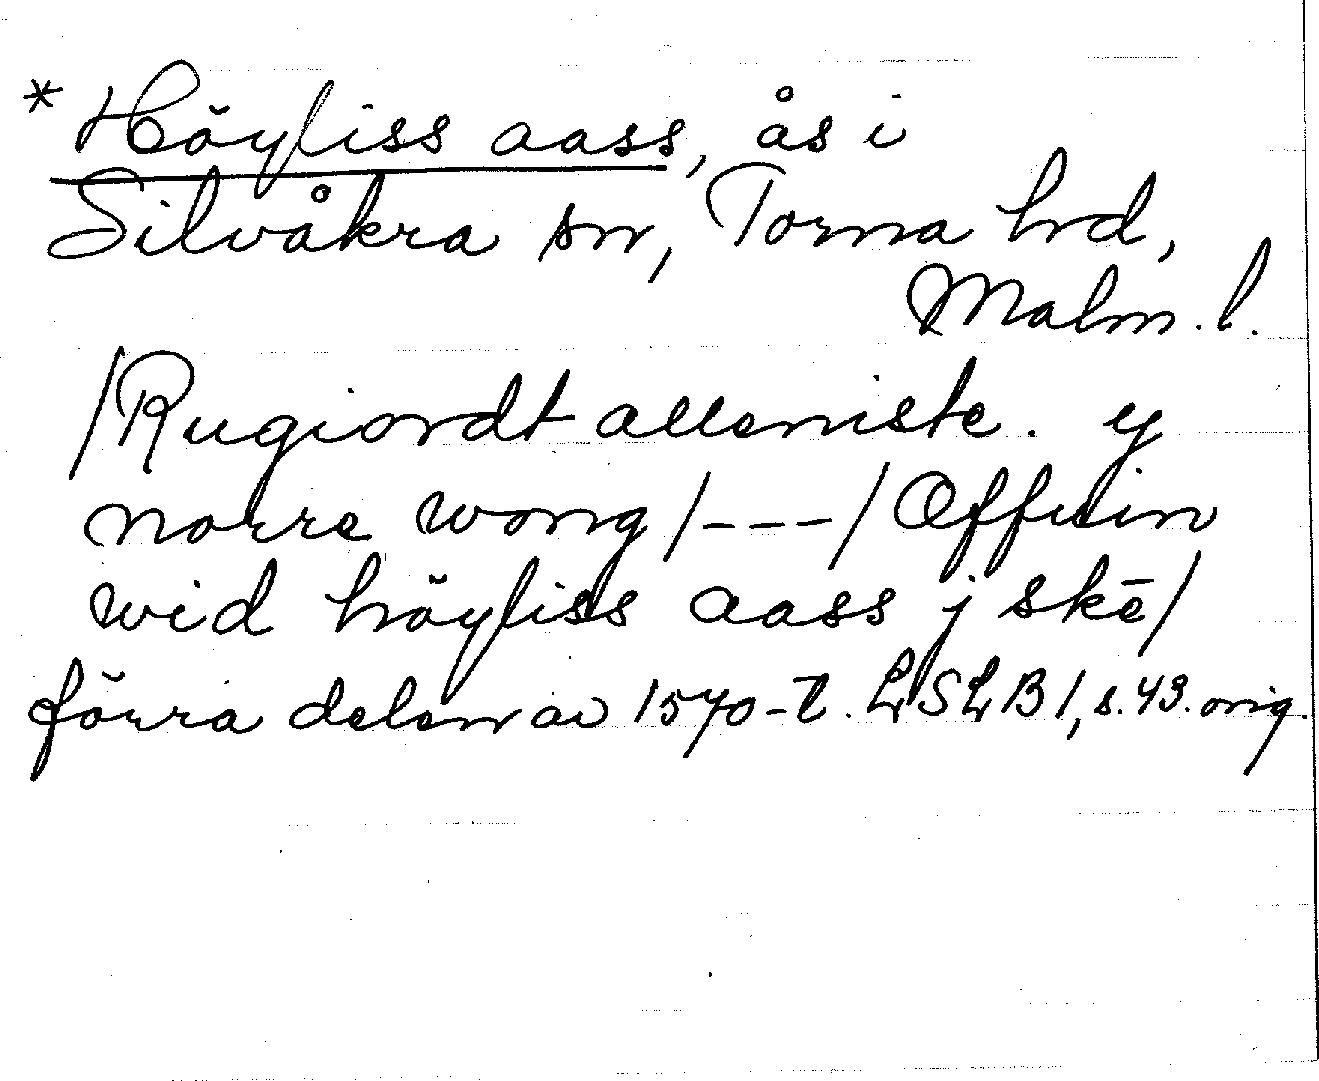 * Höyliss aass, ås i
Silvåkra sn, Torna hrd,
Malm. l.
/Rugiordt alleniste. y
norre wong/---/Offuin
wid höyliss aass j skē/
förra delen av 1570-t. LSLB1, s. 43. orig.